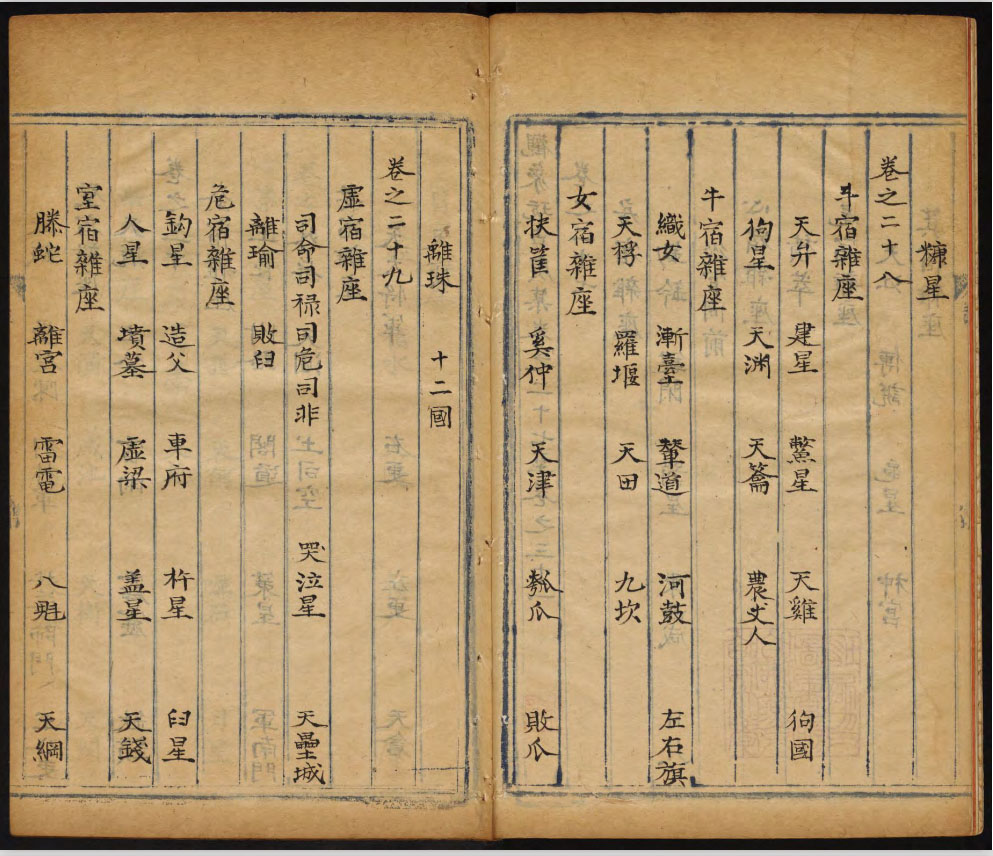 糠星
卷之二十八
斗宿雜座
天弁 建星 鱉星 天雞 狗國
狗星 天渊 天籥 農丈人
牛宿雜座
織女 漸臺 輦道 河鼓 左右旗
天桴 羅堰 天田 九坎
女宿雜座
扶筐 奚仲 天津 瓠瓜 敗瓜
離珠 十二國
卷之二十九
虛宿雜座
司命司禄司危司非 哭泣星 天壘城
離瑜 敗臼
危宿雜座
鈎星 造父 車府 杵星 臼星
人星 墳墓 虛梁 盖星 天錢
室宿雜座
螣蛇 離宮 雷電 八魁 天綱